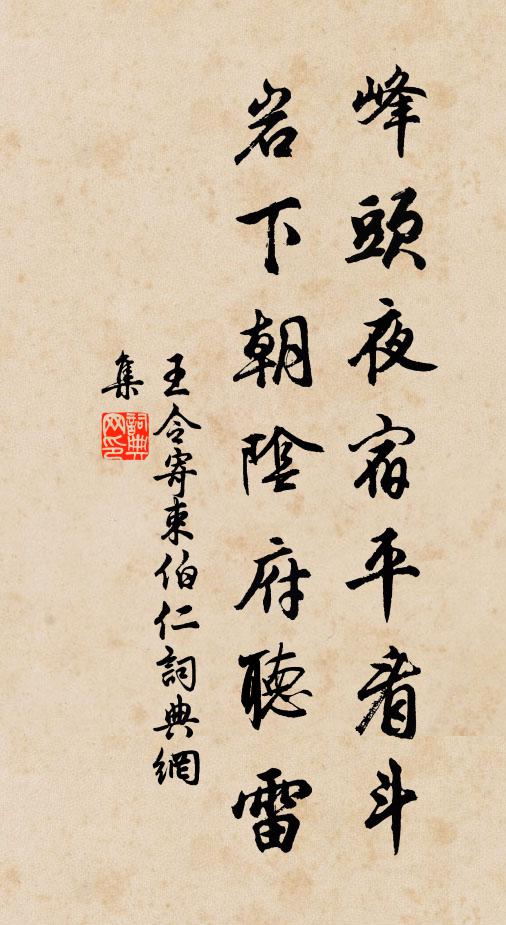 峰頭夜宿平看斗
岩下朝陰府聽雷
王令寄束伯仁詞典網
集
詞典網印